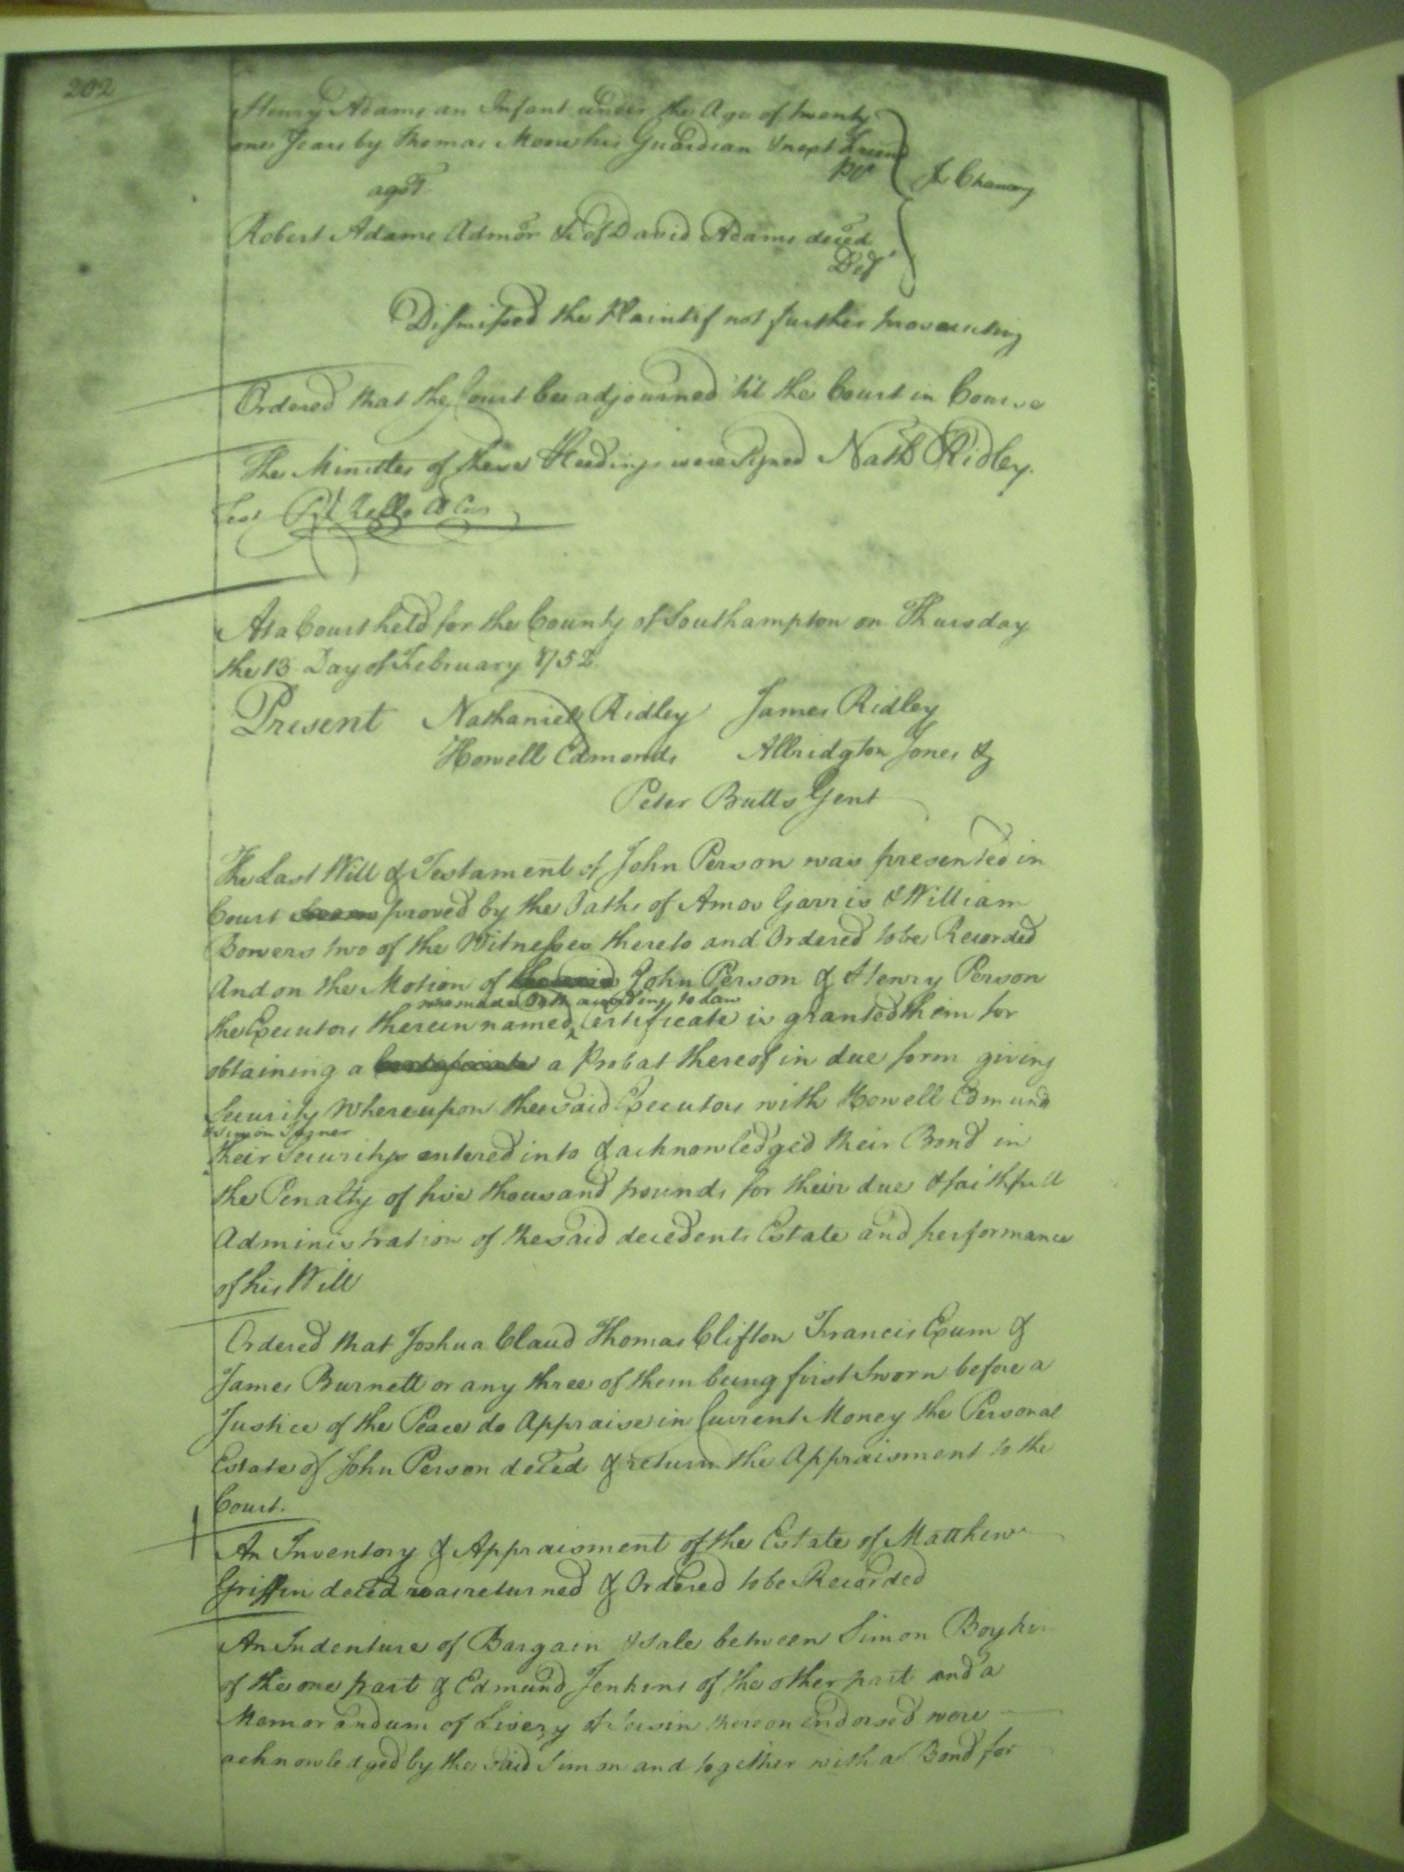 202
Henry Adams an Infant under the Age of twenty
one Years by Thomas Moore his Guardian & next Friend
Plt
agst
In Chancery
Robert Adams Admor &c of David Adams deced
Deft
Dismissed the Plaintif not further prosecuting
Ordered that the Court be adjourned 'til the Court in Course
The Minutes of these Proceedings were Signed Nath Ridley.
Test Rd Kello Cl Cur
At a Court held for the County of Southampton on Thursday
the 13 Day of February 1752
Present Nathaniel Ridley James Ridley
Howell Edmonds Allbridgton Jones &
Peter Butts Gent
The Last Will & Testament of John Person was presented in
Court proved by the Oaths of Amos Garris & William
Bowers two of the Witnesses thereto and Ordered to be Recorded
And on the Motion of the said John Person & Henry Person
who made Oath according to Law
the Executors therein named, Certificate is granted them for
obtaining a Certificate a Probat thereof in due form giving
Security Whereupon the said Executors with Howell Edmund
& Simon Turner
their Securitys entered into & acknowledged their Bond in
the Penalty of five thousand pounds for their due & faithfull
Administration of the said decedents Estate and performance
of his Will
Ordered that Joshua Claud Thomas Clifton Francis Exum &
James Burnett or any three of them being first Sworn before a
Justice of the Peace do Appraise in Current Money the Personal
Estate of John Person deced & return the Appraisment to the
Court.
An Inventory & Appraisment of the Estate of Matthew
Griffin deced was returned & Ordered to be Recorded
An Indenture of Bargain & Sale between Simon Boykin
of the one part & Edmund Jenkins of the other part and a
Memorandum of Livery & Seisin thereon endorsed were
acknowledged by the said Simon and together with a Bond for